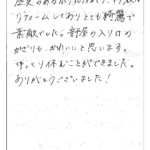 リフォームしてありとても綺麗で
素敵でした。部屋の入り口の
かざりも、かわいいと思います。
ゆっくり休むことができました。
ありがとうございました!